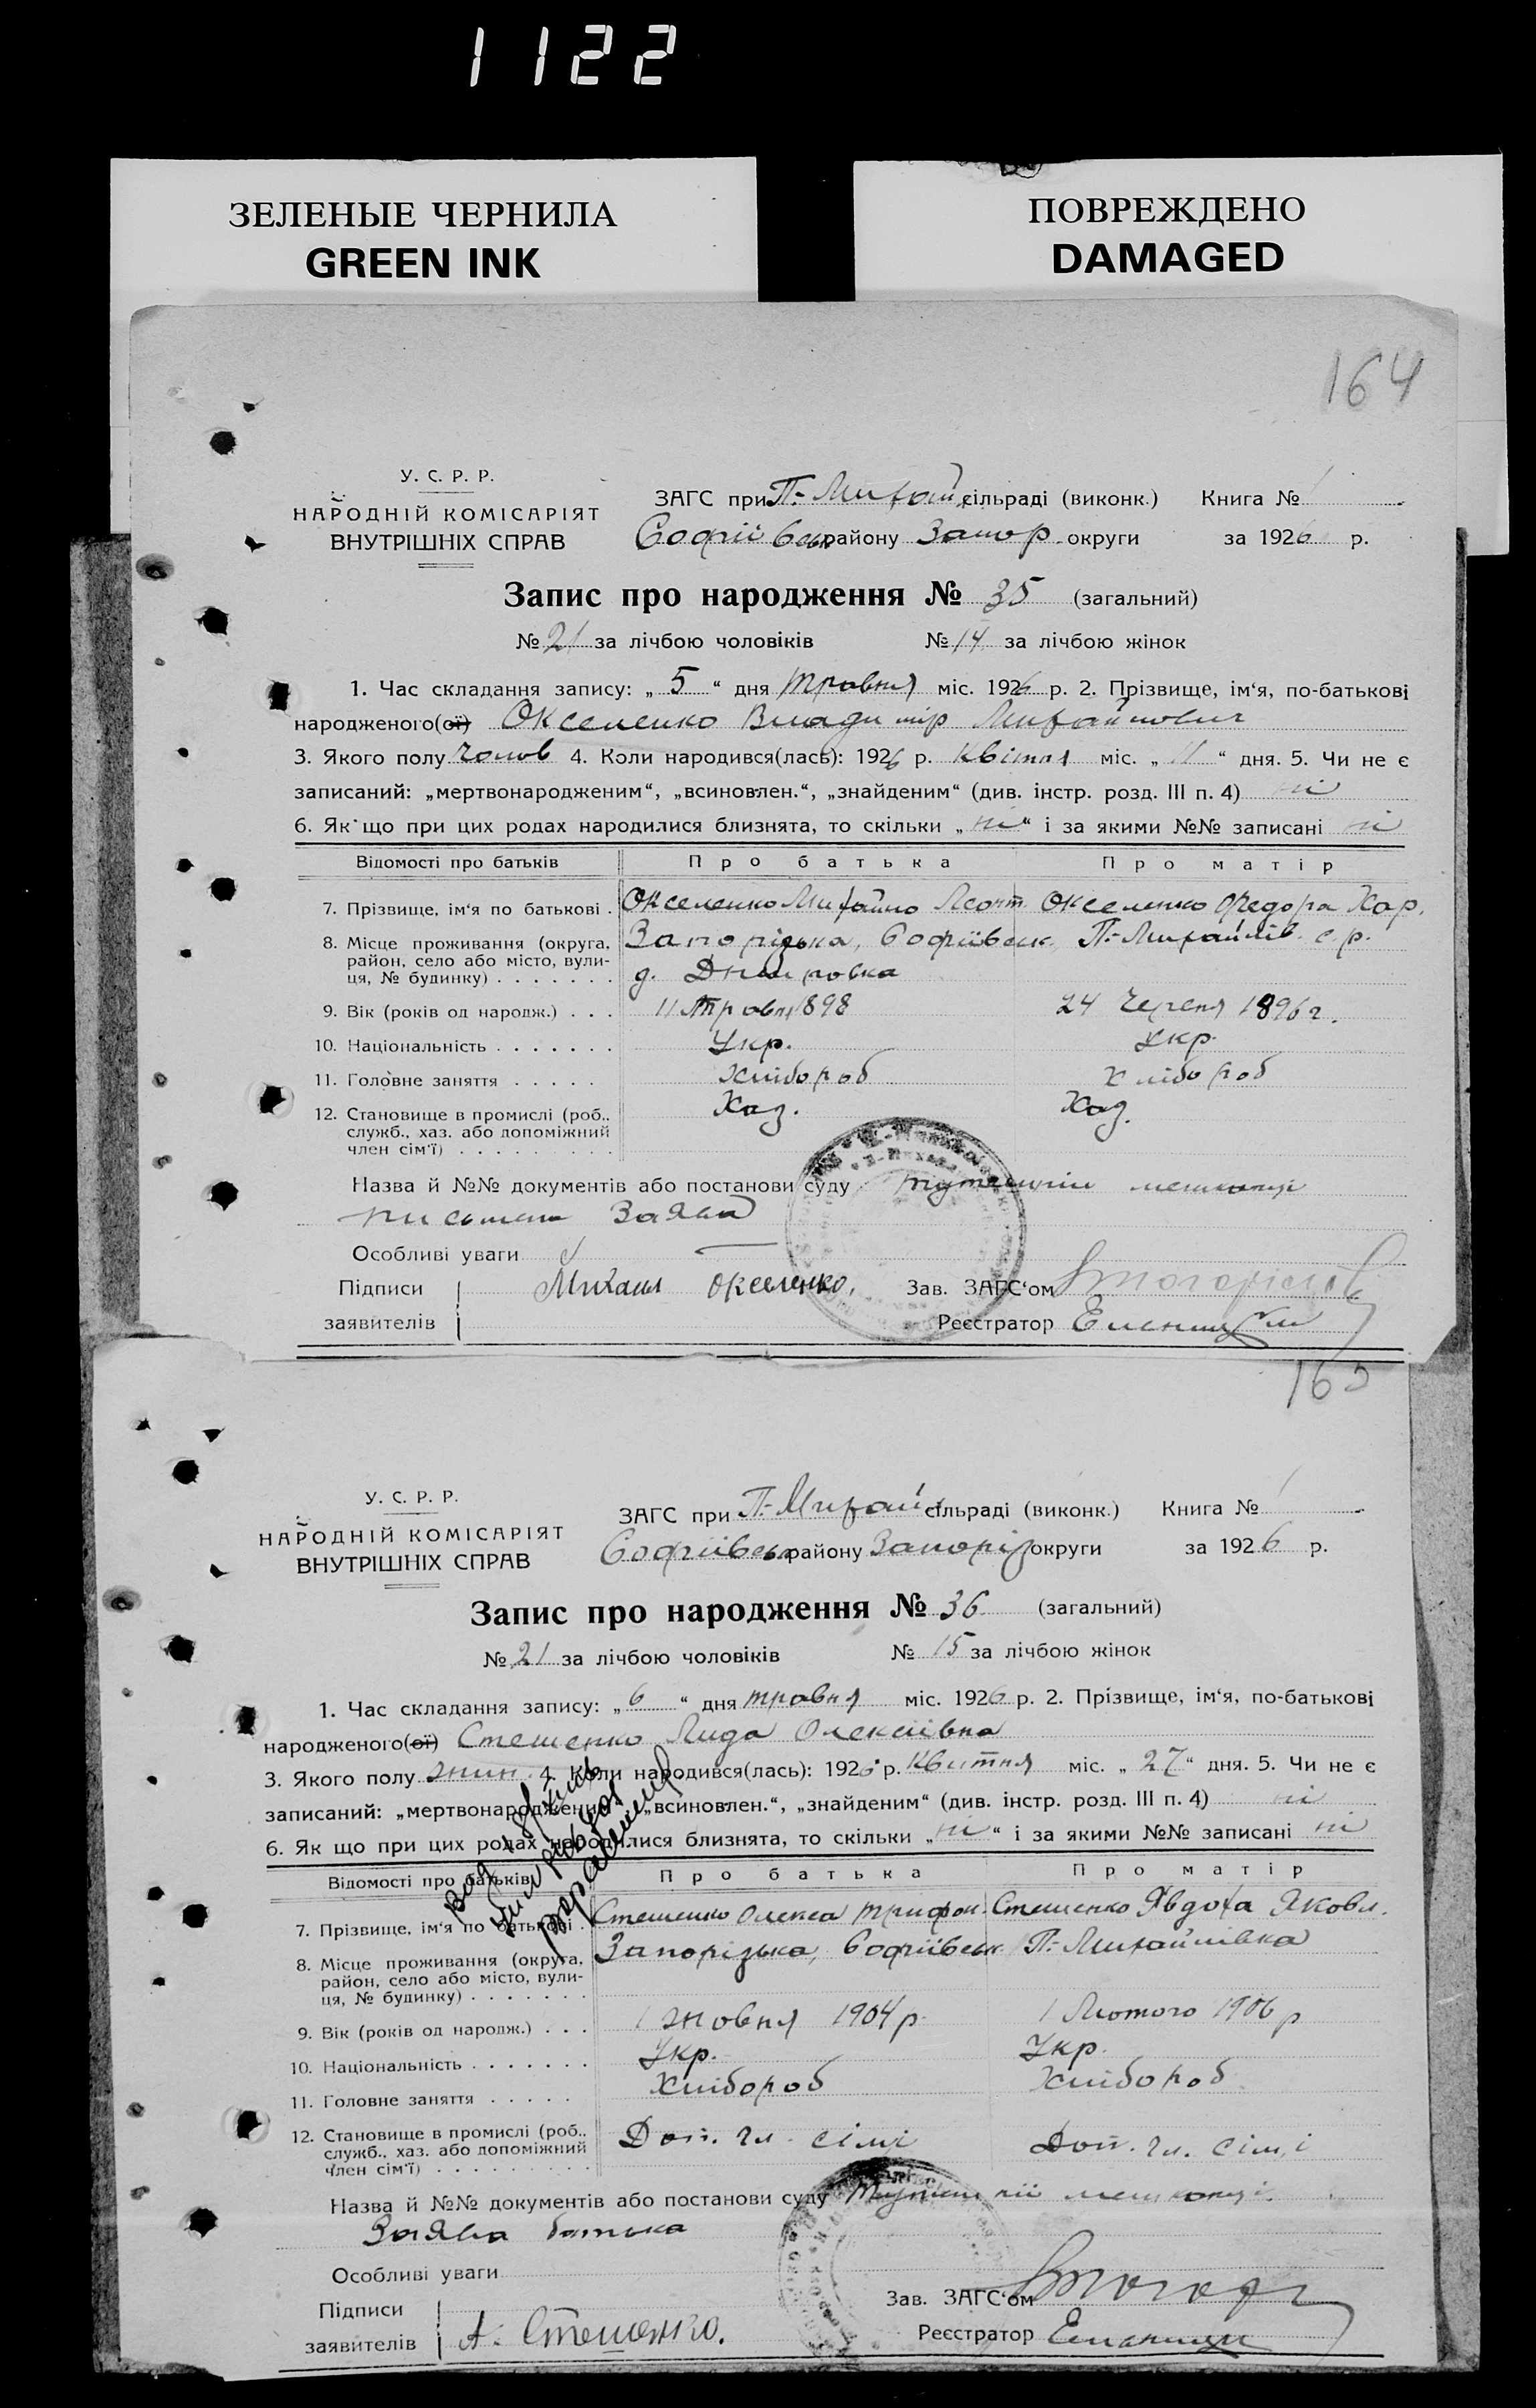 1122
ЗЕЛЕНЫЕ ЧЕРНИЛА
GREEN INK
ПОВРЕЖДЕНО
DAMAGED
164
У. С. Р. Р.
НАРОДНІЙ КОМІСАРІЯТ
ВНУТРІШНІХ СПРАВ
ЗАГС при П.-Михайл. сільраді (виконк.) Книга № 1
Софіївськ району Запор. округи за 1926 р.
Запис про народження № 35 (загальний)
№ 21 за лічбою чоловіків № 14 за лічбою жінок
1. Час складання запису: „ 5 “ дня травня міс. 1926 р. 2. Прізвище, ім‘я, по-батькові
народженого(ої) Окселенко Владимір Михайлович
3. Якого полу чолов 4. Коли народився(лась): 1926 р. квітня міс. „ 11 “ дня. 5. Чи не є
записаний: „мертвонародженим“, „всиновлен.“, „знайденим“ (див. інстр. розд. III п. 4) ні
6. Як що при цих родах народилися близнята, то скільки „ ні “ і за якими №№ записані ні
Відомості про батьків Про батька Про матір
7. Прізвище, ім‘я по батькові . Окселенко Михайло Леонт. Окселенко Федора Хар.
8. Місце проживання (округа, район, село або місто, вулиця, № будинку) . . . . . . . Запорізька, Софіївськ. П.-Михайлів. с.р.
д. Дніпровка
9. Вік (років од народж.) . . . 11 травня 1898 24 Червня 1896 г.
10. Національність . . . . . . . Укр. Укр.
11. Головне заняття . . . . . Хлібороб Хлібороб
12. Становище в промислі (роб., служб., хаз. або допоміжний член сім‘ї) . . . . . . . . . Хаз. Хаз.
Назва й №№ документів або постанови суду тутешній мешканці
письмен Заява
Особливі уваги
Підписи Михаил Окселенко. Зав. ЗАГС‘ом
заявителів Реєстратор
165
У. С. Р. Р.
НАРОДНІЙ КОМІСАРІЯТ
ВНУТРІШНІХ СПРАВ
ЗАГС при П.-Михайл. сільраді (виконк.) Книга № 1
Софіївськ району Запоріз округи за 1926 р.
Запис про народження № 36 (загальний)
№ 21 за лічбою чоловіків № 15 за лічбою жінок
1. Час складання запису: „ 6 “ дня травня міс. 1926 р. 2. Прізвище, ім‘я, по-батькові
народженого(ої) Стешенко Лида Олексіівна
3. Якого полу жин. 4. Коли народився(лась): 1926 р. Квитня міс. „ 27 “ дня. 5. Чи не є
записаний: „мертвонародженим“, „всиновлен.“, „знайденим“ (див. інстр. розд. III п. 4) ні
6. Як що при цих родах народилися близнята, то скільки „ ні “ і за якими №№ записані ні
Відомості про батьків Про батька Про матір
7. Прізвище, ім‘я по батькові . Стешенко Олекса Трифон. Стешенко Явдоха Яковл.
8. Місце проживання (округа, район, село або місто, вулиця, № будинку) . . . . . . . Запорізька, Софіївськ П.-Михайлівка
9. Вік (років од народж.) . . . 1 жовня 1904 р. 1 Лютого 1906 р
10. Національність . . . . . . . Укр. Укр.
11. Головне заняття . . . . . Хлібороб Хлібороб
12. Становище в промислі (роб., служб., хаз. або допоміжний член сім‘ї) . . . . . . . . . Доп. чл. сімі Доп. чл. сімі
Назва й №№ документів або постанови суду Тутешній мешканці.
Заява батька
Особливі уваги
Підписи Зав. ЗАГС‘ом
заявителів А. Стешенко. Реєстратор